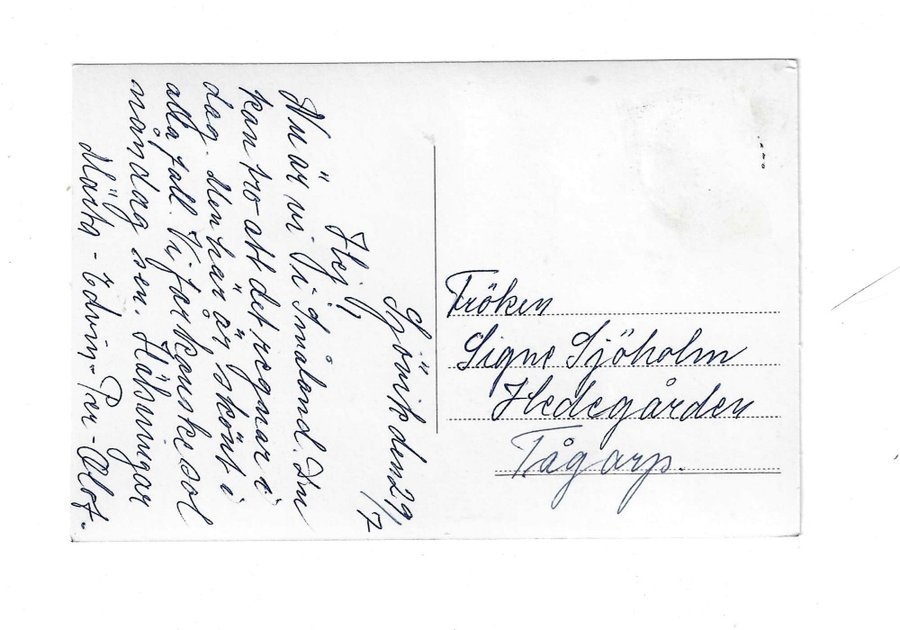 Sjövik den 29/7
Hej,
Nu är vi i Småland. Du
kan tro att det regnar i
dag. Men här är skönt i
alla fall. Vi far kanske sol
måndag sen. Hälsningar
Märta - Edvin - Per-Olof.
Fröken
Signe Sjöholm
Hedegården
Tågarp.